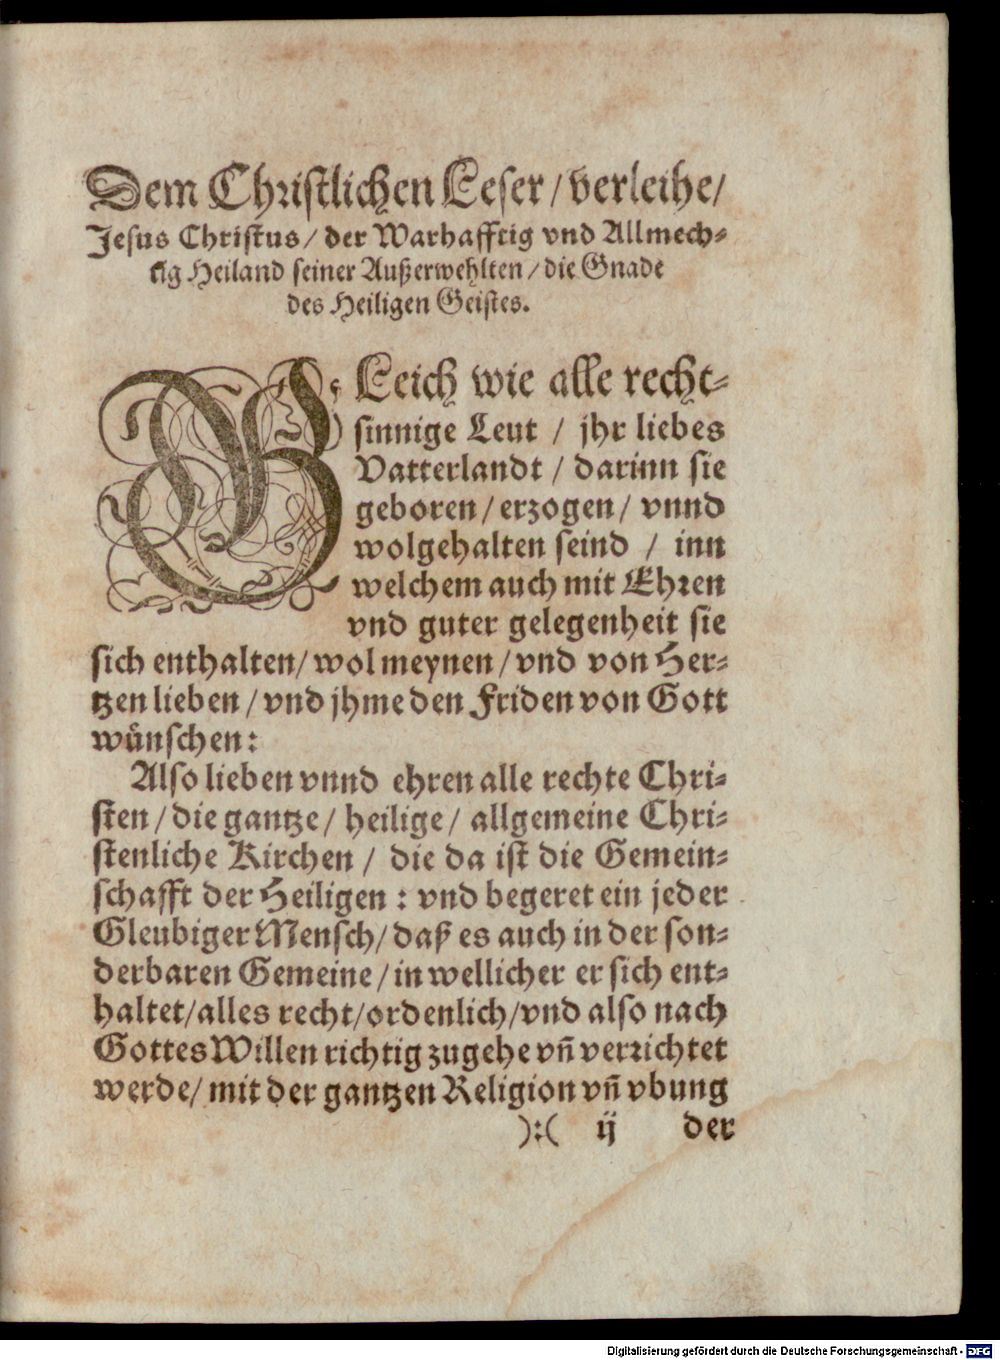 Dem Christlichen Leser / verleihe /
Jesus Christus / der Warhafftig vnd Allmech-
tig Heiland seiner Außerwehlten / die Gnade
des Heiligen Geistes.
GLeich wie alle recht-
sinnige Leut / jhr liebes
Vatterlandt / darinn sie
geboren / erzogen / vnnd
wolgehalten seind / inn
welchem auch mit Ehren
vnd guter gelegenheit sie
sich enthalten / wol meynen / vnd von Her-
tzen lieben / vnd jhme den Friden von Gott
wünschen:
Also lieben vnnd ehren alle rechte Chri-
sten / die gantze / heilige / allgemeine Chri-
stenliche Kirchen / die da ist die Gemein-
schafft der Heiligen : vnd begeret ein jeder
Gleubiger Mensch / daß es auch in der son-
derbaren Gemeine / in wellicher er sich ent-
haltet / alles recht / ordenlich / vnd also nach
Gottes Willen richtig zugehe vñ verrichtet
werde / mit der gantzen Religion vñ vbung
):( ij der
Digitalisierung gefördert durch die Deutsche Forschungsgemeinschaft - DFG